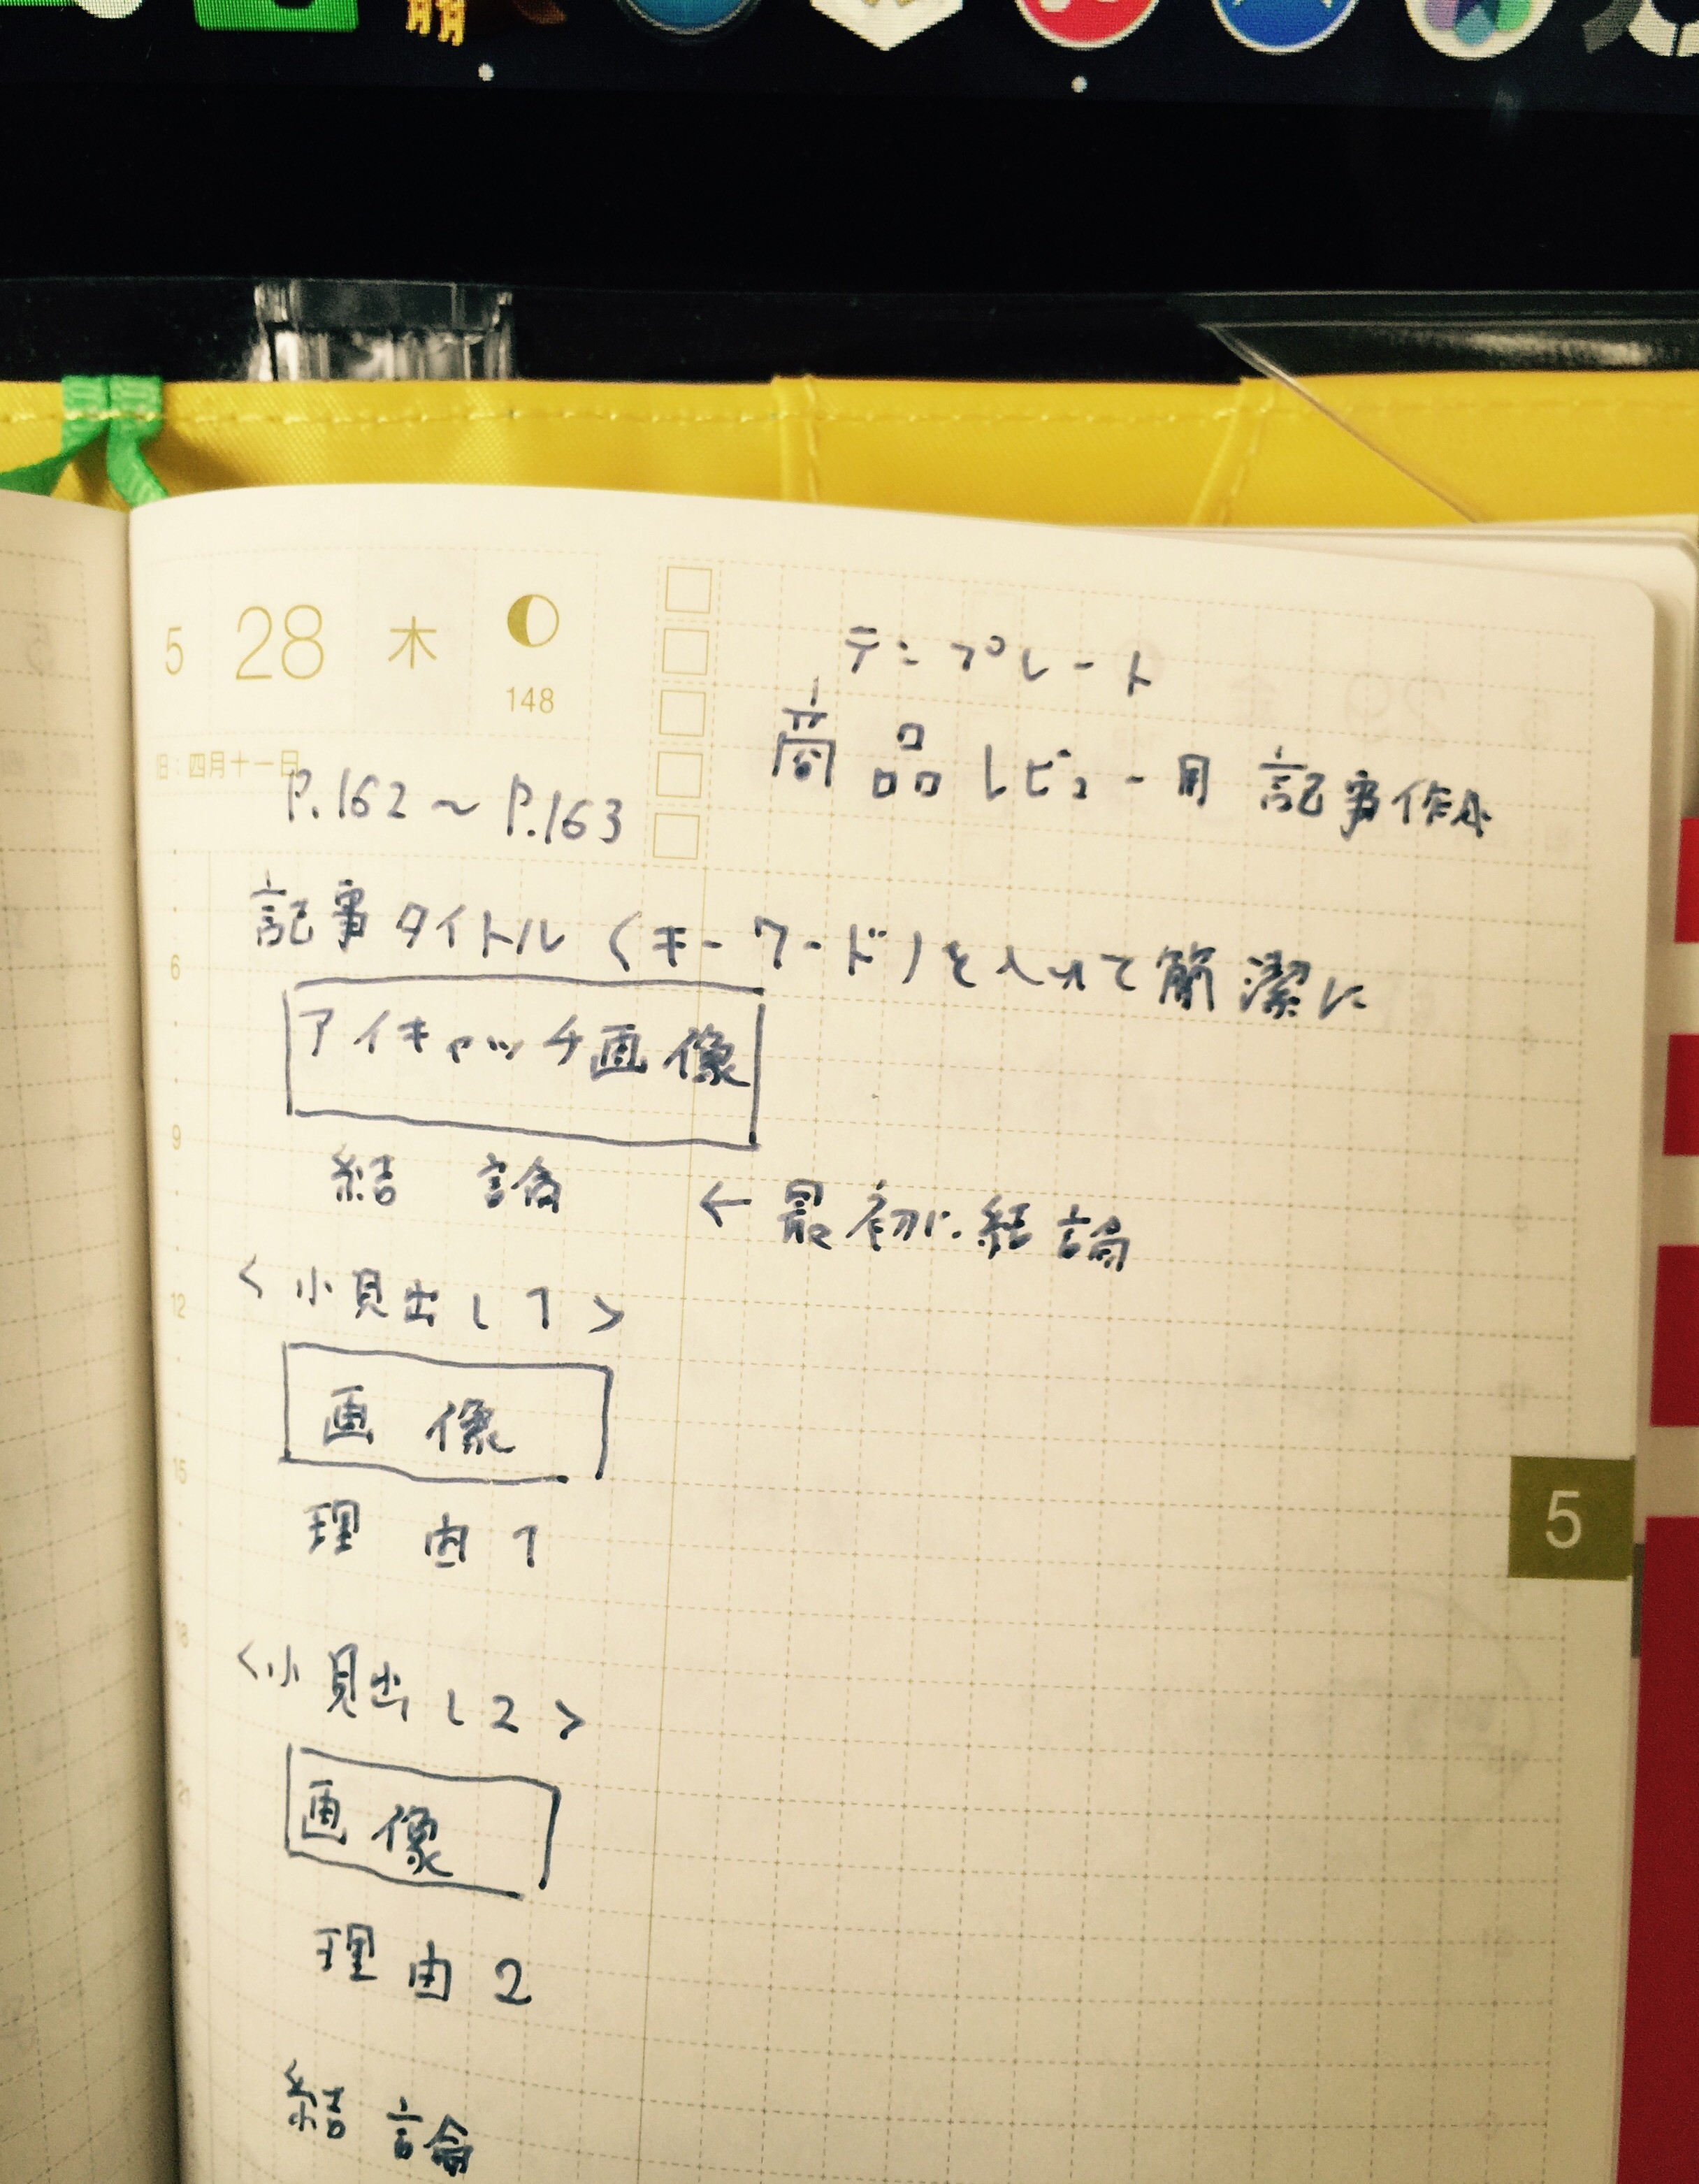 5 28 木
148
旧:四月十一日
テンプレート
商品レビュー用記事作成
P.162～P.163
記事タイトル(キーワード)を入れて簡潔に
6
アイキャッチ画像
9
結論 ← 最初に結論
12
<小見出し1>
画像
15
理由1
5
18
<小見出し2>
画像
21
理由2
結論